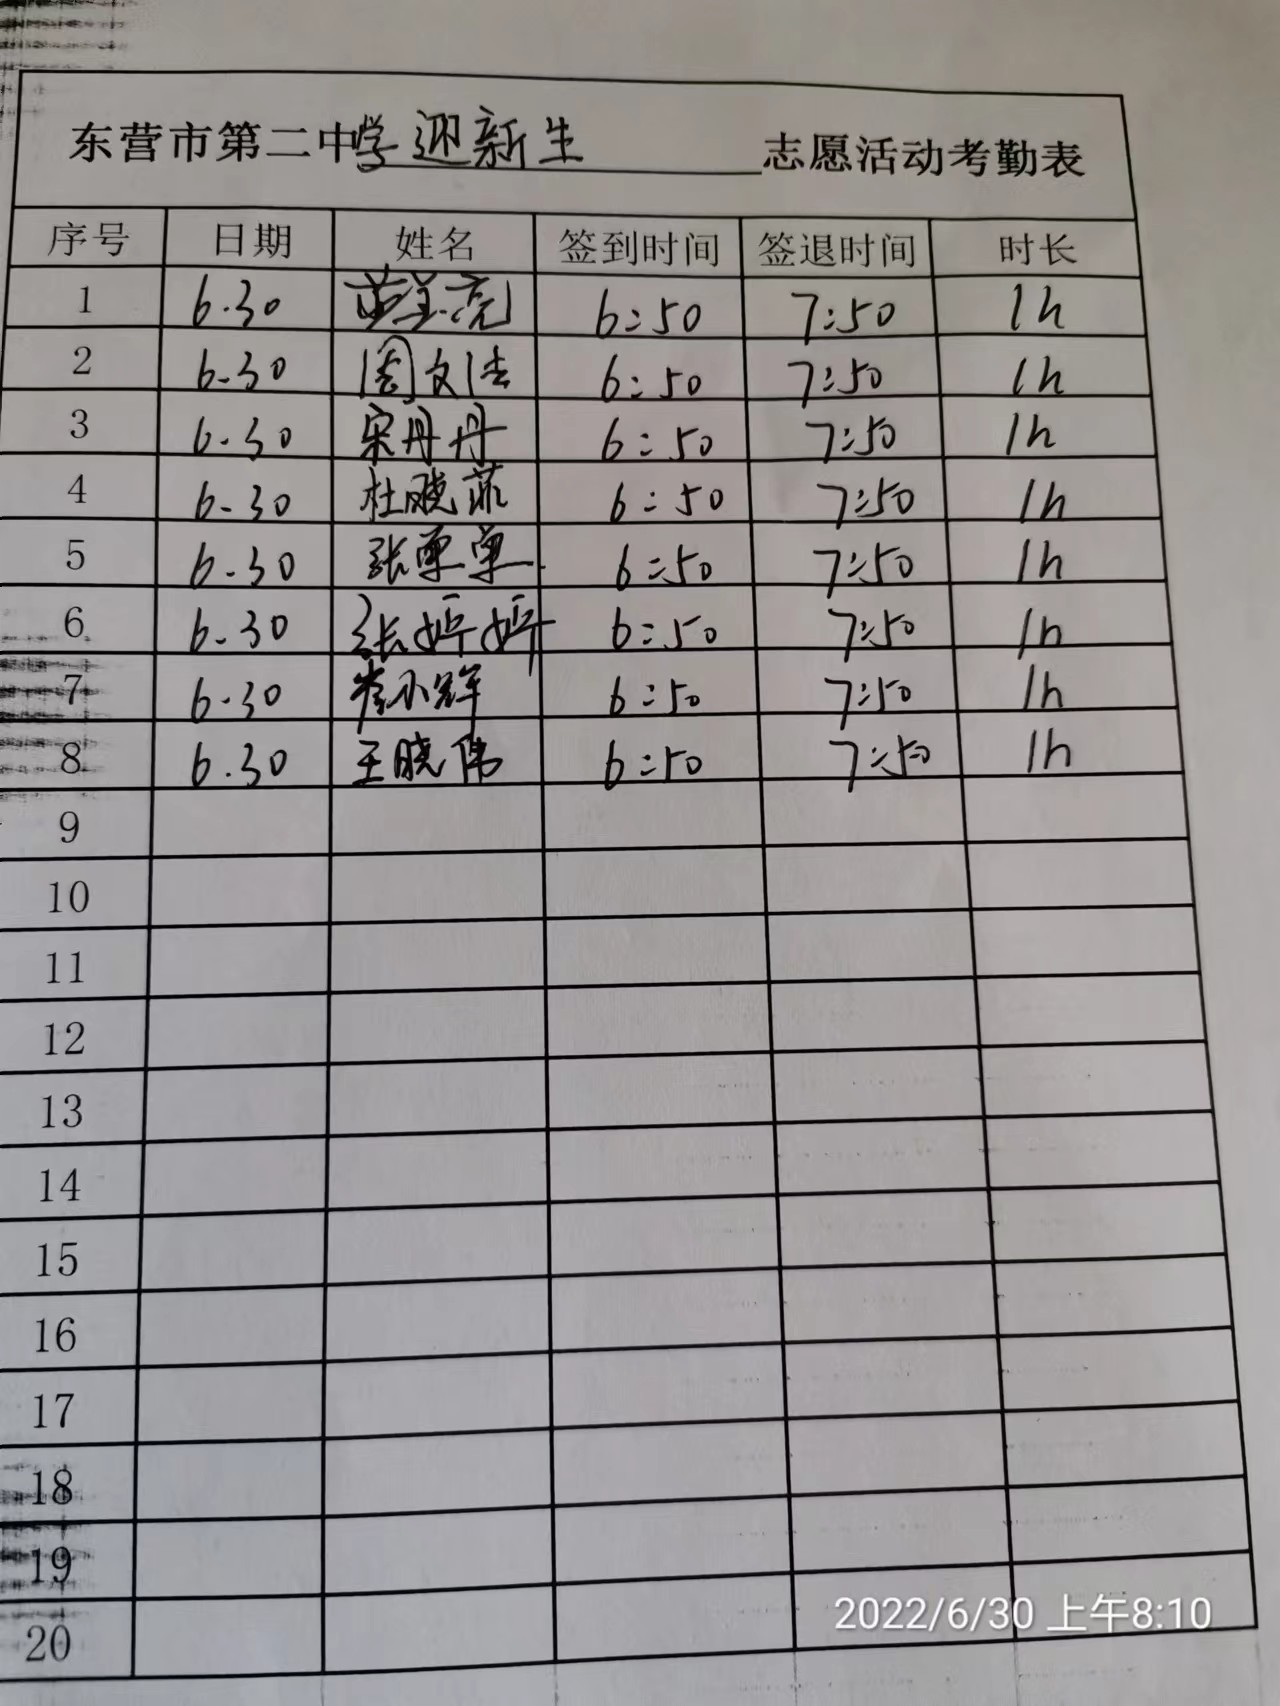 东营市第二中学迎新生志愿活动考勤表
序号 日期 姓名 签到时间 签退时间 时长
1 6.30 6:50 7:50 1h
2 6.30 周文洁 6:50 7:50 1h
3 6.30 宋丹丹 6:50 7:50 1h
4 6.30 杜晓菲 6:50 7:50 1h
5 6.30 张单单 6:50 7:50 1h
6 6.30 张婷婷 6:50 7:50 1h
7 6.30 崔小辉 6:50 7:50 1h
8 6.30 王晓伟 6:50 7:50 1h
9
10
11
12
13
14
15
16
17
18
19
20
2022/6/30 上午8:10